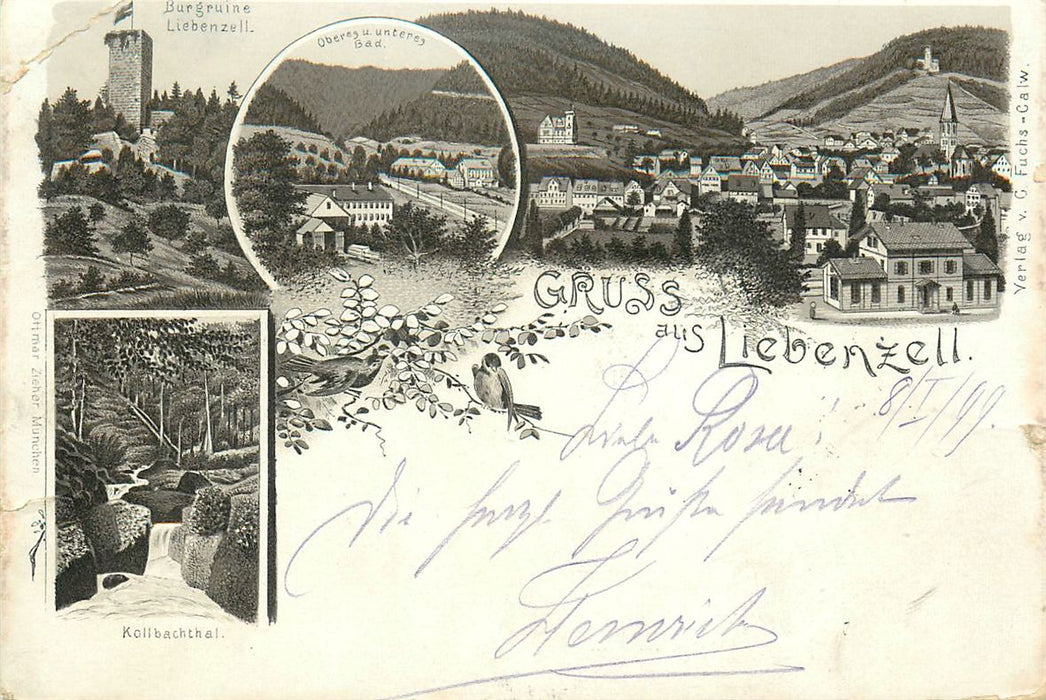 Burgruine
Liebenzell.
Oberes u. unteres
Bad.
Verlag v. C. Fuchs-Calw.
Ottmar Zieher München
GRUSS
aus Liebenzell.
8/I/99.
Liebe Rosa!
Die herzl. Grüße sendet
Heinrich
Kollbachthal.